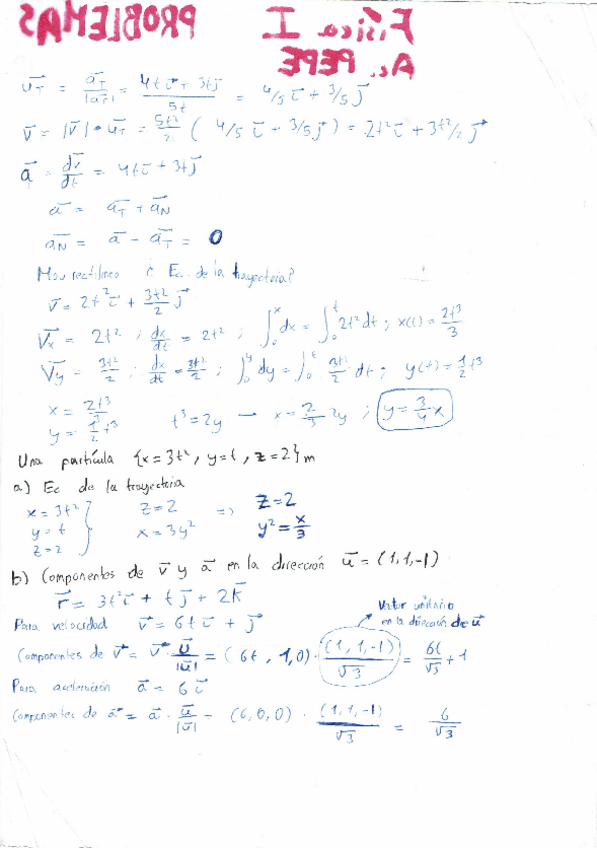 Física I PROBLEMAS
Ac. PEPE
u⃗_T = a⃗_T/|a⃗_T| = (4t i⃗ + 3t j⃗)/5t = 4/5 i⃗ + 3/5 j⃗
v⃗ = |v⃗| · u⃗_T = 5t²/2 ( 4/5 i⃗ + 3/5 j⃗ ) = 2t² i⃗ + 3t²/2 j⃗
a⃗ = dv⃗/dt = 4t i⃗ + 3t j⃗
a⃗ = a⃗_T + a⃗_N
a⃗_N = a⃗ - a⃗_T = 0
Mov rectilíneo ¿ Ec. de la trayectoria?
v⃗ = 2t² i⃗ + 3t²/2 j⃗
V⃗x = 2t² ; dx/dt = 2t² ; ∫₀ˣ dx = ∫₀ᵗ 2t² dt ; x(t) = 2t³/3
V⃗y = 3t²/2 ; dx/dt = 3t²/2 ; ∫₀ʸ dy = ∫₀ᵗ 3t²/2 dt ; y(t) = 1/2 t³
x = 2t³/3
y = 1/2 t³
t³ = 2y → x = 2/3 2y ; y = 3/4 x
Una partícula {x = 3t², y = t, z = 2} m
a) Ec de la trayectoria
x = 3t² z = 2 => z = 2
y = t x = 3y² y² = x/3
z = 2
b) Componentes de v⃗ y a⃗ en la dirección u⃗ = (1, 1, -1)
r⃗ = 3t² i⃗ + t j⃗ + 2k⃗
Vator unitario
en la dirección de u⃗
Para velocidad v⃗ = 6t i⃗ + j⃗
Componentes de v⃗ = v⃗ · u⃗/|u⃗| = (6t, 1, 0) · (1, 1, -1)/√3 = 6t/√3 + 1
Para aceleración a⃗ = 6 i⃗
Componentes de a⃗ = a⃗ · u⃗/|u⃗| = (6, 0, 0) · (1, 1, -1)/√3 = 6/√3